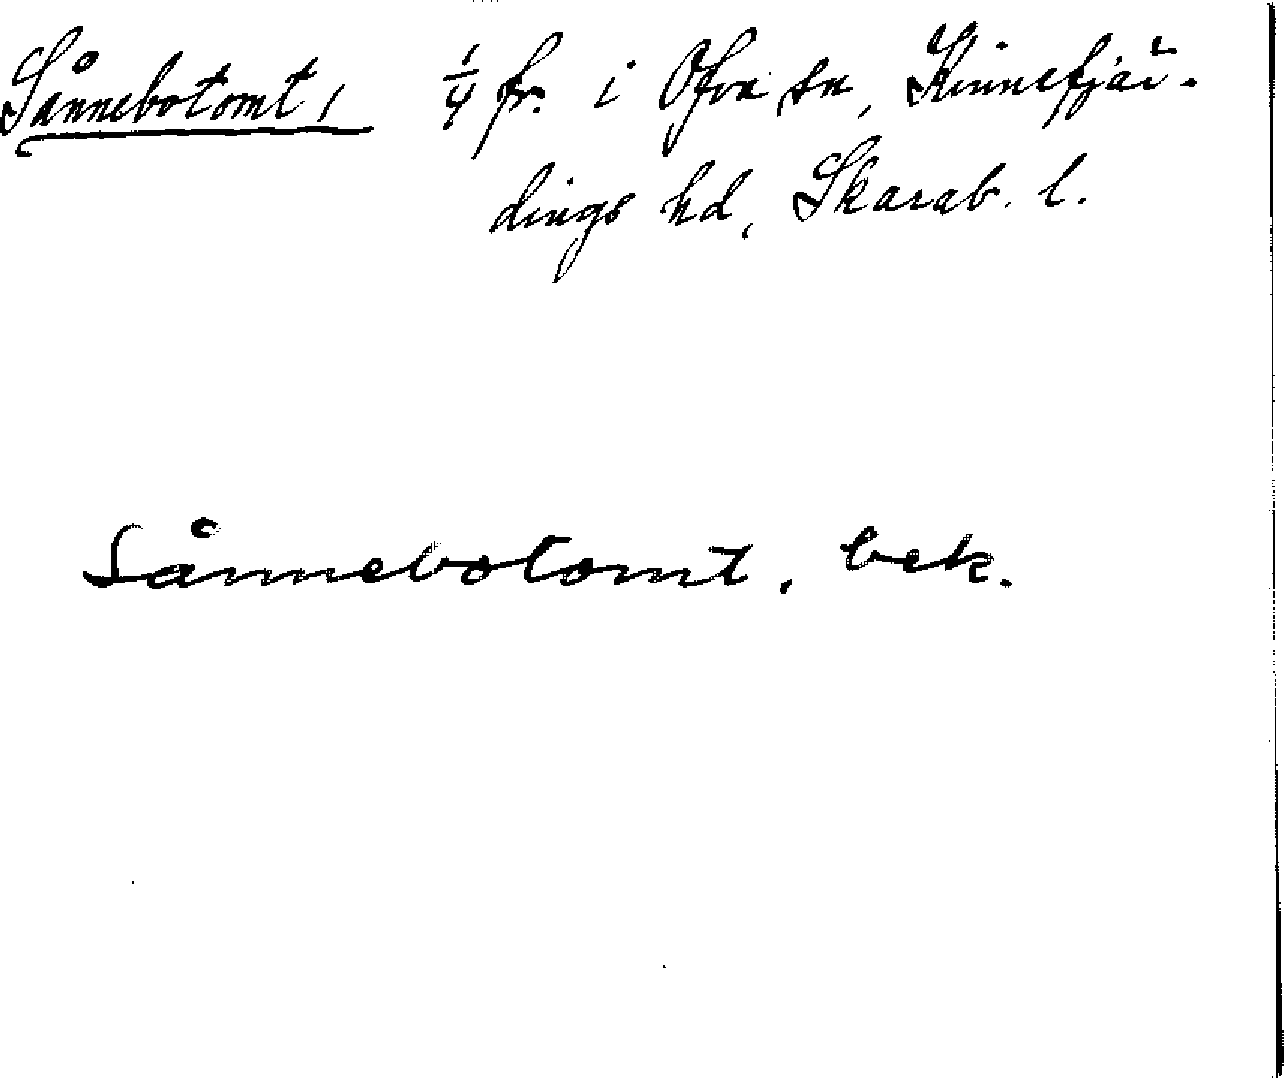 Sånnebotomt, 1/4 fr. i Ofva sn, Kinnefjär-
dings hd, Skarab. l.
Sånnebotomt, bek.